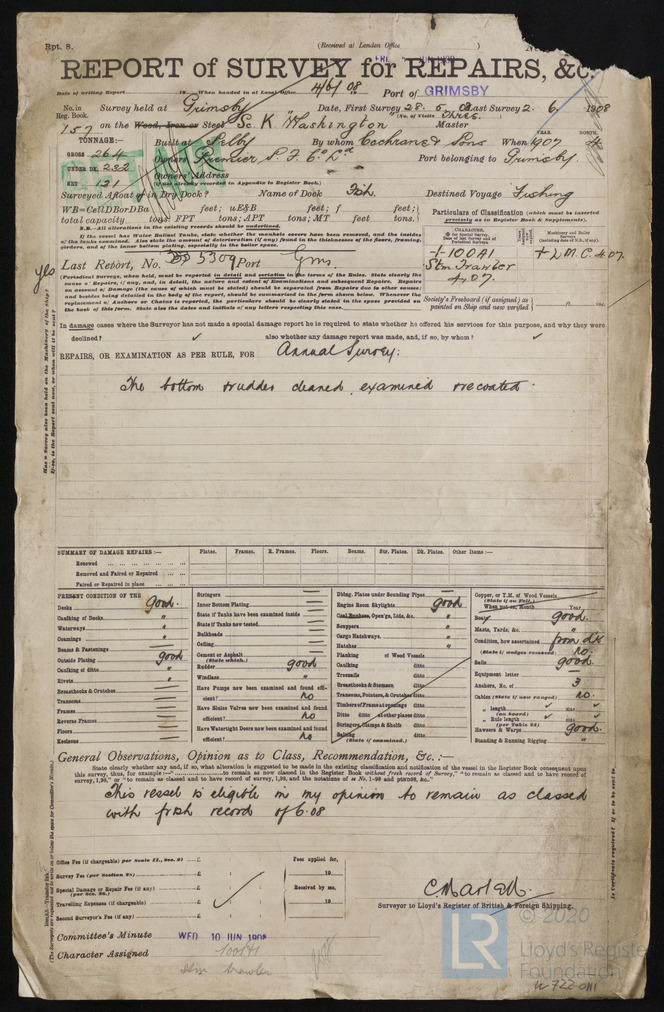 Rpt. 8.
(Received at London Office
REPORT of SURVEY for REPAIRS, &c.
Date of writing Report 19 When handed in at Local Office 4/6/08 Port of GRIMSBY
No. in Survey held at Grimsby Date, First Survey 28. 5. 08 Last Survey 2. 6. 1908
Reg. Book. (No. of Visits Three.
157 on the Wood, Iron or Steel Sc. K "Washington" Master
TONNAGE:— Built at Selby By whom Cochrane & Sons When 1907 4
YEAR. MONTH.
GROSS 264 Owners Port belonging to Grimsby.
UNDER DK. 232 Owners' Address
NET 121 (If not already recorded in Appendix to Register Book.)
Surveyed Afloat or in Dry Dock? Name of Dock Fish. Destined Voyage Fishing
WB=CellDBorDBa feet; uE&B feet; f feet;
total capacity tons; FPT tons; APT tons; MT feet tons.
Particulars of Classification (which must be inserted precisely as in Register Book & Supplements).
N.B.—All alterations in the existing records should be underlined.
If the vessel has Water Ballast Tanks, state whether the manhole covers have been removed, and the insides
of the tanks examined. Also state the amount of deterioration (if any) found in the thicknesses of the floors, framing,
girders, and of the inner bottom plating, especially in the boiler space.
CHARACTER.
+100A1 +LMC 4.07.
Stm Trawler
4,07.
Last Report, No. 5309 Port Gms
yes
(Periodical Surveys, when held, must be reported in detail and seriatim in the terms of the Rules. State clearly the
cause of Repairs, if any, and, in detail, the nature and extent of Examinations and subsequent Repairs. Repairs
on account of Damage (the cause of which must be stated) should be separated from Repairs due to other causes
and besides being detailed in the body of the report, should be summarized in the form shown below. Whenever the
replacement of Anchors or Chains is reported, the particulars should be clearly stated in the space provided on
the back of this form. State also the dates and initials of any letters respecting this case.
Society's Freeboard (if assigned) as
painted on Ship and now verified
In damage cases where the Surveyor has not made a special damage report he is required to state whether he offered his services for this purpose, and why they were
declined? ✓ also whether any damage report was made, and, if so, by whom? ✓
REPAIRS, OR EXAMINATION AS PER RULE, FOR Annual Survey:
The bottom & rudder cleaned, examined & recoated.
SUMMARY OF DAMAGE REPAIRS:— Plates. Frames. R. Frames. Floors. Beams. Str. Plates. Dk. Plates. Other Items:—
Renewed
Removed and Faired or Repaired
Faired or Repaired in place
PRESENT CONDITION OF THE
Decks good.
Caulking of Decks "
Waterways "
Coamings "
Beams & Fastenings
Outside Plating good
Caulking of ditto "
Rivets "
Breasthooks & Crutches
Transoms
Frames
Reverse Frames
Floors
Keelsons
Stringers
Inner Bottom Plating
State if Tanks have been examined inside
State if Tanks now tested
Bulkheads
Ceiling
Cement or Asphalt
(State which.)
Rudder good
Windlass "
Have Pumps now been examined and found efficient? no
Have Sluice Valves now been examined and found efficient? no
Have Watertight Doors now been examined and found efficient? no
Dblng. Plates under Sounding Pipes
Engine Room Skylights good
Coal Bunkers, Open'gs, Lids, &c. "
Scuppers "
Cargo Hatchways "
Hatches "
Planking of Wood Vessels
Caulking ditto
Treenails ditto
Breasthooks & Stemson ditto
Transoms, Pointers, & Crutches ditto
Timbers of Frame at openings ditto
Ditto ditto at other places ditto
Stringers, Clamps & Shelfs ditto
Salting ditto
(State if examined.)
Copper, or Y.M. of Wood Vessels
(State if on Felt.)
When put on, Month Year
Boats good.
Masts, Yards, &c. "
Condition, how ascertained from dk
(State if wedges removed) no.
Sails good.
Equipment letter
Anchors, No. of 3
Cables (State if now ranged) no.
" length ✓
(on board)
" Rule length ✓
Hawsers & Warps good.
Standing & Running Rigging "
General Observations, Opinion as to Class, Recommendation, &c.:—
State clearly whether any and, if so, what alteration is suggested to be made in the existing classification and notification of the vessel in the Register Book consequent upon
this survey, thus, for example:—
This vessel is eligible in my opinion to remain as classed
with fresh record of 6.08
Office Fee (if chargeable) per Scale II., Sec. 2) £
Survey Fee (per Section 28) £
Special Damage or Repair Fee (if any) £
Travelling Expenses (if chargeable) £
Second Surveyor's Fee (if any) £
Fees applied for,
19
Received by me,
19
Surveyor to Lloyd's Register of British & Foreign Shipping.
Committee's Minute WED 10 JUN 1908
Character Assigned 100A1
Stm Trawler
LR
© 2020
Lloyd's Register
Foundation
W722-0111